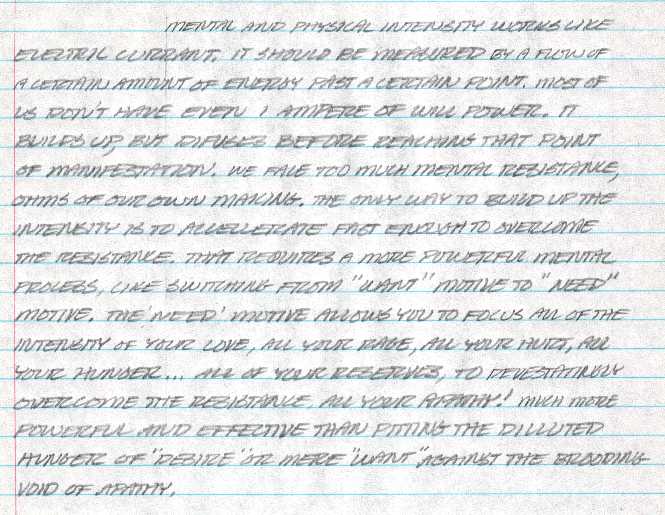 MENTAL AND PHYSICAL INTENSITY WORKS LIKE
ELECTRIC CURRANT. IT SHOULD BE MEASURED BY A FLOW OF
A CERTAIN AMOUNT OF ENERGY PAST A CERTAIN POINT. MOST OF
US DON'T HAVE EVEN 1 AMPERE OF WILL POWER. IT
BUILDS UP, BUT DIFUSES BEFORE REACHING THAT POINT
OF MANIFESTATION. WE FACE TOO MUCH MENTAL RESISTANCE,
OHMS OF OUR OWN MAKING. THE ONLY WAY TO BUILD UP THE
INTENSITY IS TO ACCELLERATE FAST ENOUGH TO OVERCOME
THE RESISTANCE. THAT REQUIRES A MORE POWERFUL MENTAL
PROCESS, LIKE SWITCHING FROM "WANT" MOTIVE TO "NEED"
MOTIVE. THE 'NEED' MOTIVE ALLOWS YOU TO FOCUS ALL OF THE
INTENSITY OF YOUR LOVE, ALL YOUR RAGE, ALL YOUR HURT, ALL
YOUR HUNGER... ALL OF YOUR RESERVES, TO DEVESTATINGLY
OVERCOME THE RESISTANCE. ALL YOUR APATHY! MUCH MORE
POWERFUL AND EFFECTIVE THAN PITTING THE DILLUTED
HUNGER OF "DESIRE" OR MERE "WANT", AGAINST THE BROODING
VOID OF APATHY.